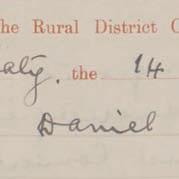 the Rural District C
the 14
Daniel